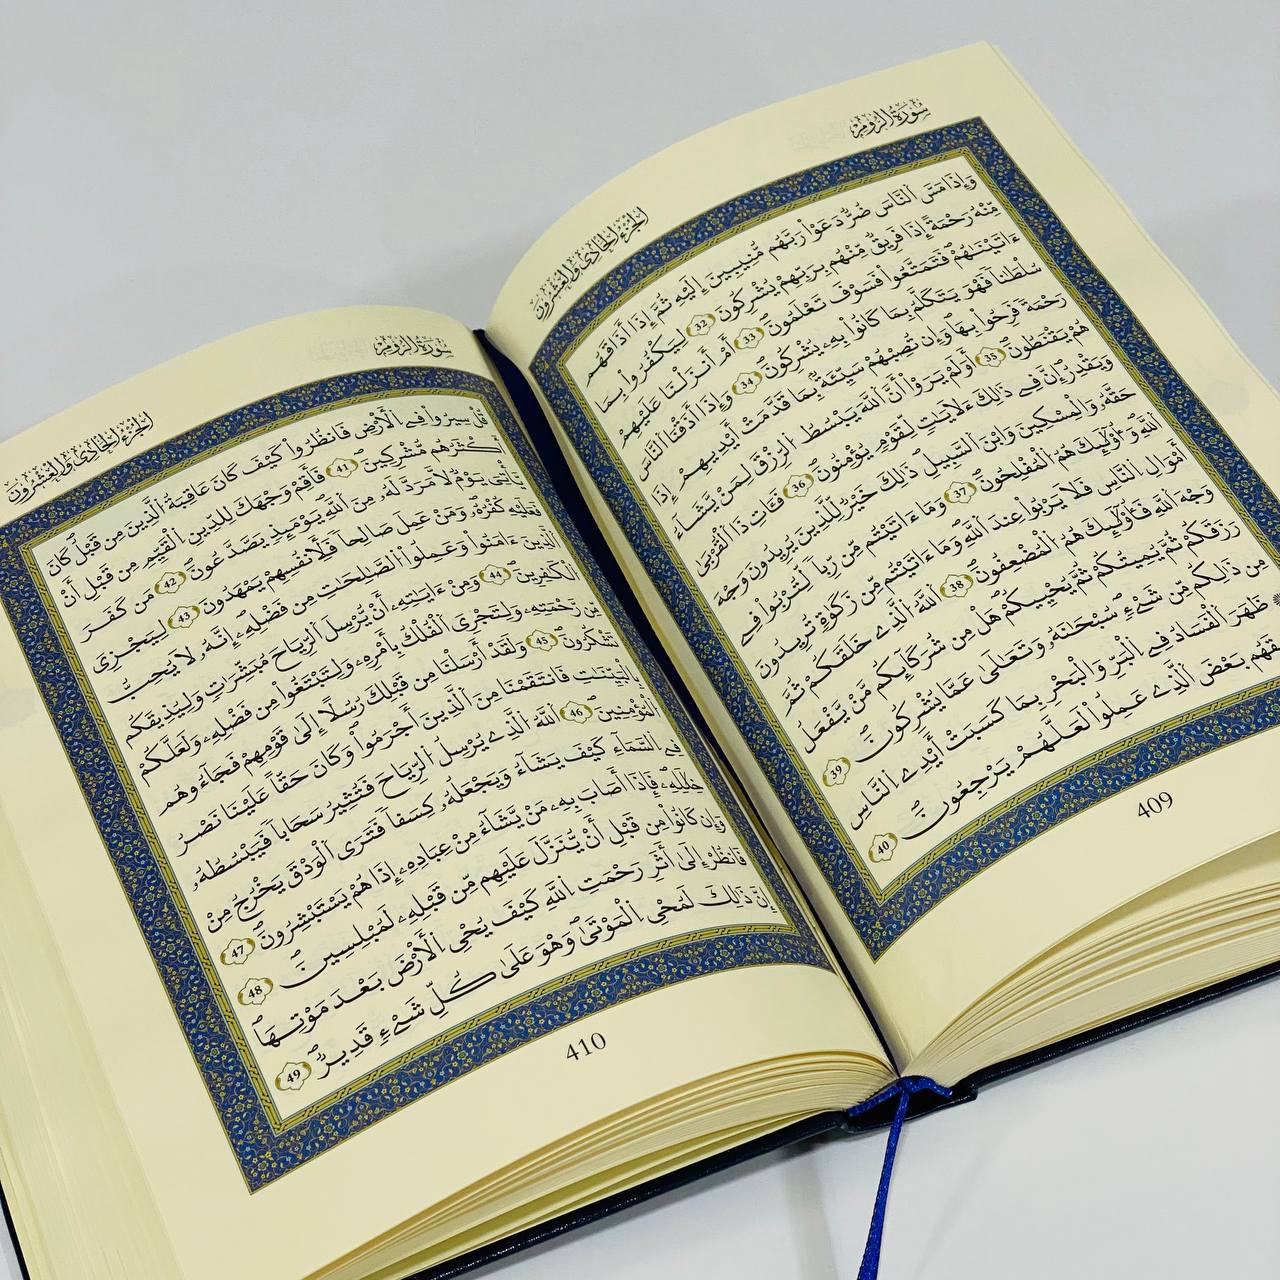 سُورَةُ الرُّومِ
الجُزْءُ الحَادِي وَالعِشْرُونَ
وَإِذَا مَسَّ اَلنَّاسَ ضُرٌّ دَعَوْاْ رَبَّهُم مُّنِيبِينَ إِلَيْهِ ثُمَّ إِذَا أَذَاقَهُم
مِّنْهُ رَحْمَةً إِذَا فَرِيقٌ مِّنْهُم بِرَبِّهِمْ يُشْرِكُونَ 32 لِيَكْفُرُواْ بِمَا
ءَاتَيْنَٰهُمْ فَتَمَتَّعُواْ فَسَوْفَ تَعْلَمُونَ 33 أَمْ أَنزَلْنَا عَلَيْهِمْ
سُلْطَٰناً فَهُوَ يَتَكَلَّمُ بِمَا كَانُواْ بِهِۦ يُشْرِكُونَ 34 وَإِذَا أَذَقْنَا اَلنَّاسَ
رَحْمَةً فَرِحُواْ بِهَا وَإِن تُصِبْهُمْ سَيِّئَةٌ بِمَا قَدَّمَتْ أَيْدِيهِمْ إِذَا
هُمْ يَقْنَطُونَ 35 أَوَلَمْ يَرَوْاْ أَنَّ اَللَّهَ يَبْسُطُ اُلرِّزْقَ لِمَنْ يَّشَآءُ
وَيَقْدِرُ إِنَّ فِي ذَٰلِكَ ءَلَايَٰتٍ لِّقَوْمٍ يُؤْمِنُونَ 36 فَـَٔاتِ ذَا اَلْقُرْبَىٰ
حَقَّهُۥ وَالْمِسْكِينَ وَابْنَ اَلسَّبِيلِ ذَٰلِكَ خَيْرٌ لِّلَّذِينَ يُرِيدُونَ وَجْهَ
اَللَّهِ وَأُوْلَٰٓئِكَ هُمُ اُلْمُفْلِحُونَ 37 وَمَا ءَاتَيْتُم مِّن رِّباً لِّتُرْبُواْ فِي
أَمْوَٰلِ اِلنَّاسِ فَلَا يَرْبُواْ عِندَ اَللَّهِ وَمَا ءَاتَيْتُم مِّن زَكَوٰةٍ تُرِيدُونَ
وَجْهَ اَللَّهِ فَأُوْلَٰٓئِكَ هُمُ اُلْمُضْعِفُونَ 38 اَللَّهُ اُلَّذِي خَلَقَكُمْ ثُمَّ
رَزَقَكُمْ ثُمَّ يُمِيتُكُمْ ثُمَّ يُحْيِيكُمْ هَلْ مِن شُرَكَآئِكُم مَّنْ يَّفْعَلُ
مِن ذَٰلِكُم مِّن شَيْءٍ سُبْحَٰنَهُۥ وَتَعَٰلَىٰ عَمَّا يُشْرِكُونَ 39
ظَهَرَ اَلْفَسَادُ فِي اِلْبَرِّ وَالْبَحْرِ بِمَا كَسَبَتْ أَيْدِي اِلنَّاسِ
بَعْضَ اَلَّذِي عَمِلُواْ لَعَلَّهُمْ يَرْجِعُونَ 40
409
سُورَةُ الرُّومِ
الجُزْءُ الحَادِي وَالعِشْرُونَ
قُلْ سِيرُواْ فِي اِلْأَرْضِ فَانظُرُواْ كَيْفَ كَانَ عَٰقِبَةُ اُلَّذِينَ مِن قَبْلُ كَانَ
أَكْثَرُهُم مُّشْرِكِينَ 41 فَأَقِمْ وَجْهَكَ لِلدِّينِ اِلْقَيِّمِ مِن قَبْلِ أَنْ
يَّأْتِيَ يَوْمٌ لَّا مَرَدَّ لَهُۥ مِنَ اَللَّهِ يَوْمَئِذٍ يَصَّدَّعُونَ 42 مَن كَفَرَ
فَعَلَيْهِ كُفْرُهُۥ وَمَنْ عَمِلَ صَٰلِحاً فَلِأَنفُسِهِمْ يَمْهَدُونَ 43 لِيَجْزِيَ
اَلَّذِينَ ءَامَنُواْ وَعَمِلُواْ اُلصَّٰلِحَٰتِ مِن فَضْلِهِۦ إِنَّهُۥ لَا يُحِبُّ
اُلْكَٰفِرِينَ 44 وَمِنْ ءَايَٰتِهِۦ أَنْ يُّرْسِلَ اَلرِّيَاحَ مُبَشِّرَٰتٍ وَلِيُذِيقَكُم
مِّن رَّحْمَتِهِۦ وَلِتَجْرِيَ اَلْفُلْكُ بِأَمْرِهِۦ وَلِتَبْتَغُواْ مِن فَضْلِهِۦ وَلَعَلَّكُمْ
تَشْكُرُونَ 45 وَلَقَدْ أَرْسَلْنَا مِن قَبْلِكَ رُسُلاً إِلَىٰ قَوْمِهِمْ فَجَآءُوهُم
بِالْبَيِّنَٰتِ فَانتَقَمْنَا مِنَ اَلَّذِينَ أَجْرَمُواْ وَكَانَ حَقّاً عَلَيْنَا نَصْرُ
اُلْمُؤْمِنِينَ 46 اَللَّهُ اُلَّذِي يُرْسِلُ اُلرِّيَاحَ فَتُثِيرُ سَحَاباً فَيَبْسُطُهُۥ
فِي اِلسَّمَآءِ كَيْفَ يَشَآءُ وَيَجْعَلُهُۥ كِسَفاً فَتَرَى اَلْوَدْقَ يَخْرُجُ مِنْ
خِلَٰلِهِۦ فَإِذَا أَصَابَ بِهِۦ مَنْ يَّشَآءُ مِنْ عِبَادِهِۦ إِذَا هُمْ يَسْتَبْشِرُونَ 47
وَإِن كَانُواْ مِن قَبْلِ أَنْ يُّنَزَّلَ عَلَيْهِم مِّن قَبْلِهِۦ لَمُبْلِسِينَ 48
فَانظُرْ إِلَىٰ أَثَرِ رَحْمَتِ اِللَّهِ كَيْفَ يُحْيِ اِلْأَرْضَ بَعْدَ مَوْتِهَا
إِنَّ ذَٰلِكَ لَمُحْيِ اِلْمَوْتَىٰ وَهُوَ عَلَىٰ كُلِّ شَيْءٍ قَدِيرٌ 49
410